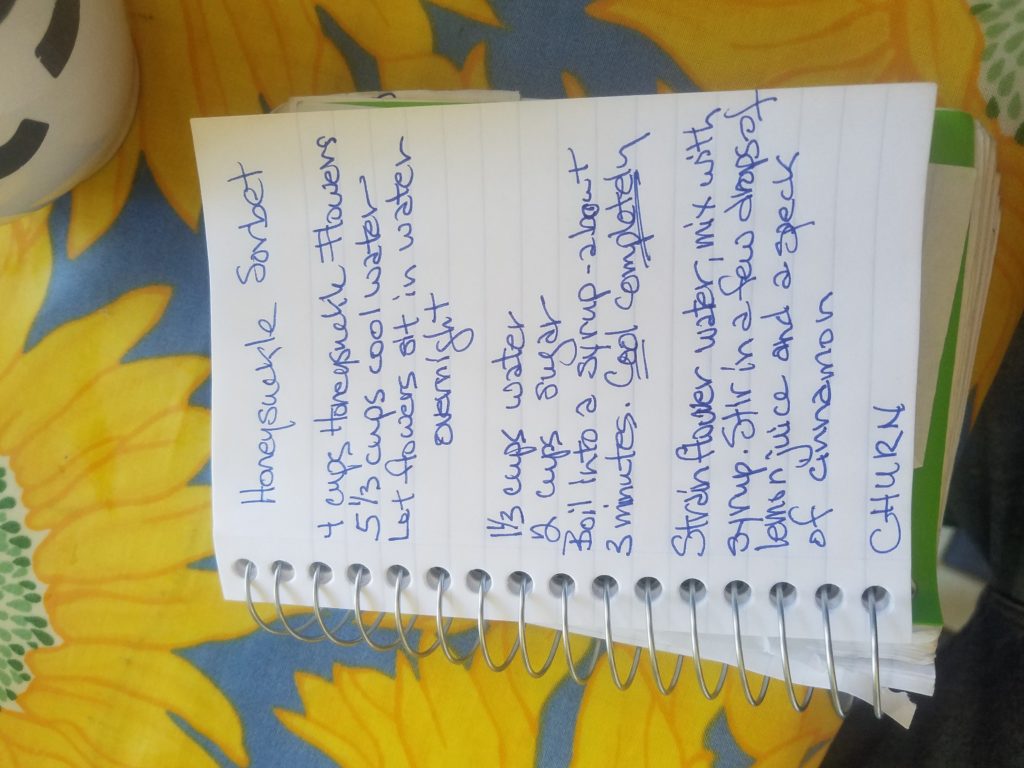 Honeysuckle Sorbet
4 cups Honeysuckle Flowers
5 1/3 cups cool water
Let flowers sit in water
overnight
1 1/3 cups water
2 cups sugar
Boil into a syrup - about
3 minutes. Cool completely
Strain flower water, mix with
syrup. Stir in a few drops of
lemon juice and a speck
of cinnamon
CHURN